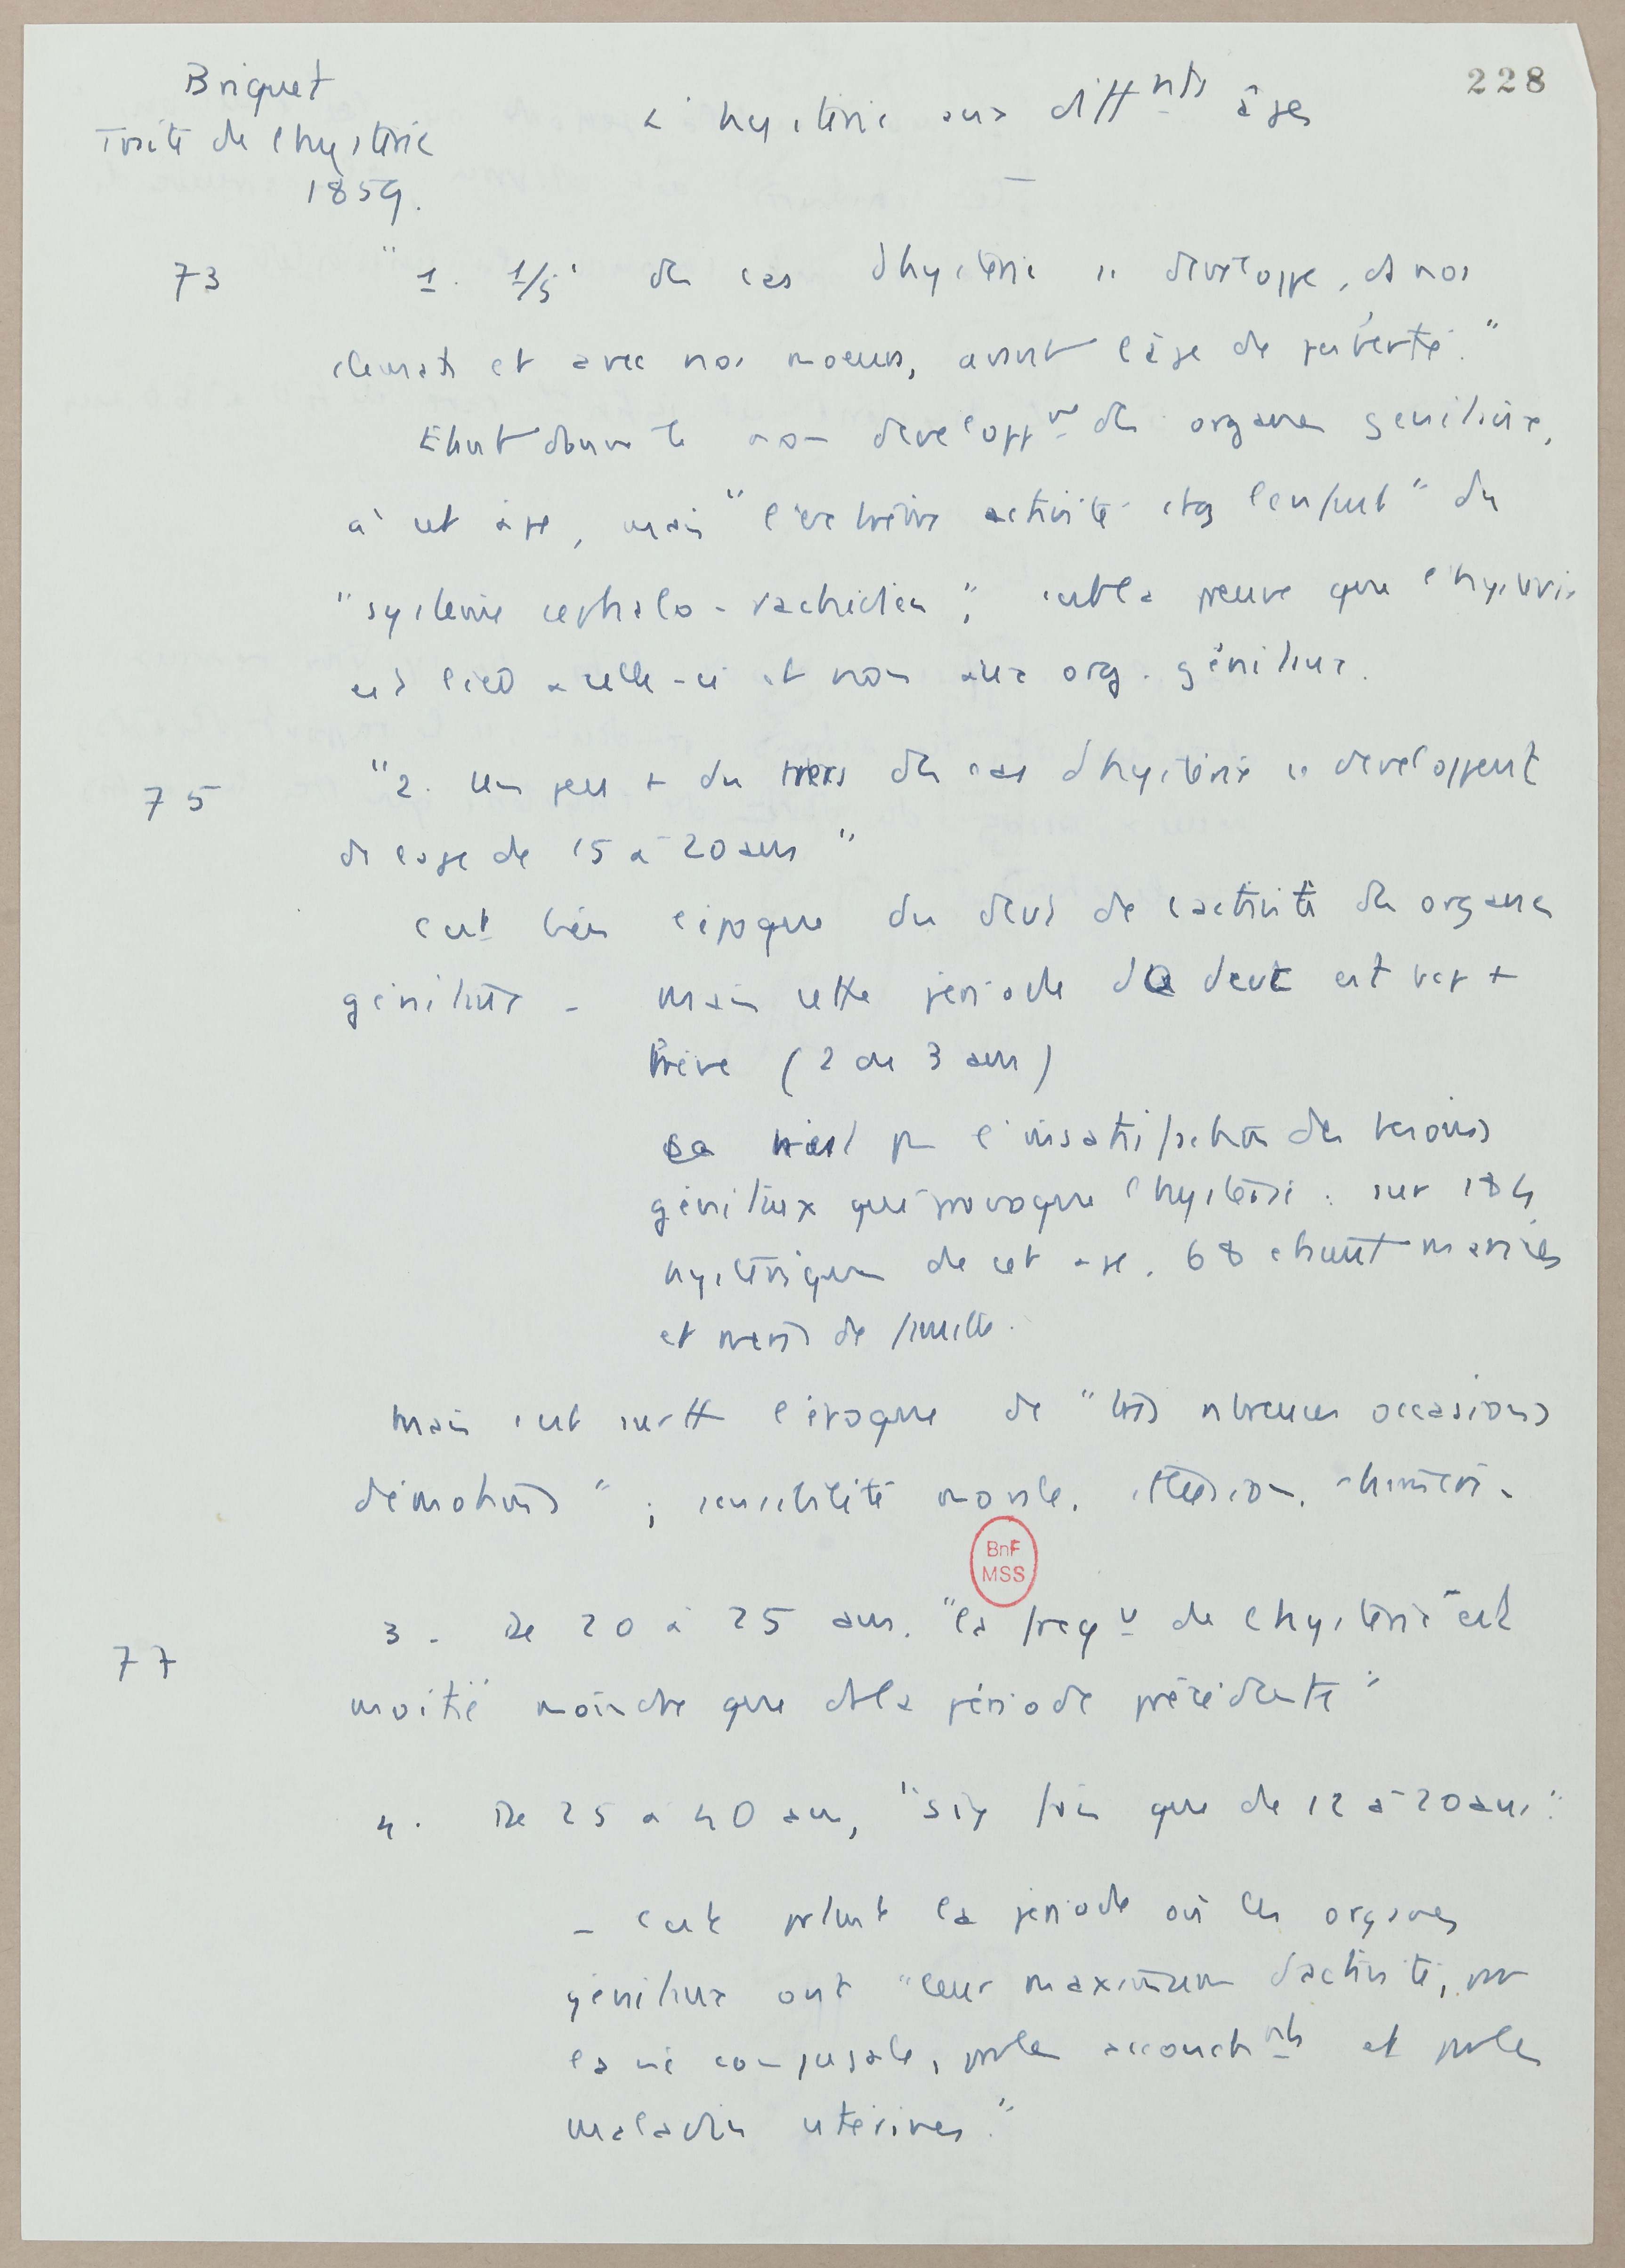 228
Briquet
Traité de l'hystérie
1859.
L'hystérie aux diff nts âges
73
"1. 1/5 des cas d'hystérie se développe, ds nos
climats et avec nos moeurs, avant l'âge de puberté."
Etant donné le non développt des organes génitaux,
à cet âge, mais "l'extrême activité chez l'enfant" du
"système céphalo-rachidien", c'est la preuve que l'hystérie
est liée à celle-ci et non aux org. génitaux.
75
"2. Un peu + du tiers des cas d'hystérie se développent
de l'age de 15 à 20 ans"
C'est bien l'époque du de l'activité des organes
génitaux - Mais cette période de est +
brève (2 ou 3 ans)
ca n'est pas l'insatisfaction des besoins
génitaux qui provoque l'hystérie : sur 184
hystériques de cet age, 68 étaient mariées
et mères de famille.
Mais c'est surtt l'époque de "très nbreuses occasions
d'émotions" ; sensibilité morale,
77
3. De 20 à 25 ans, "la freq u de l'hystérie est
moitié moindre que ds la période précédente"
4. De 25 à 40 ans, "six fois que de 12 à 20 ans."
- C'est la période où les organes
génitaux ont "leur maximum d'activité, par
la vie conjugale, par les accouch nts et par les
maladies utérines."
BnF
MSS